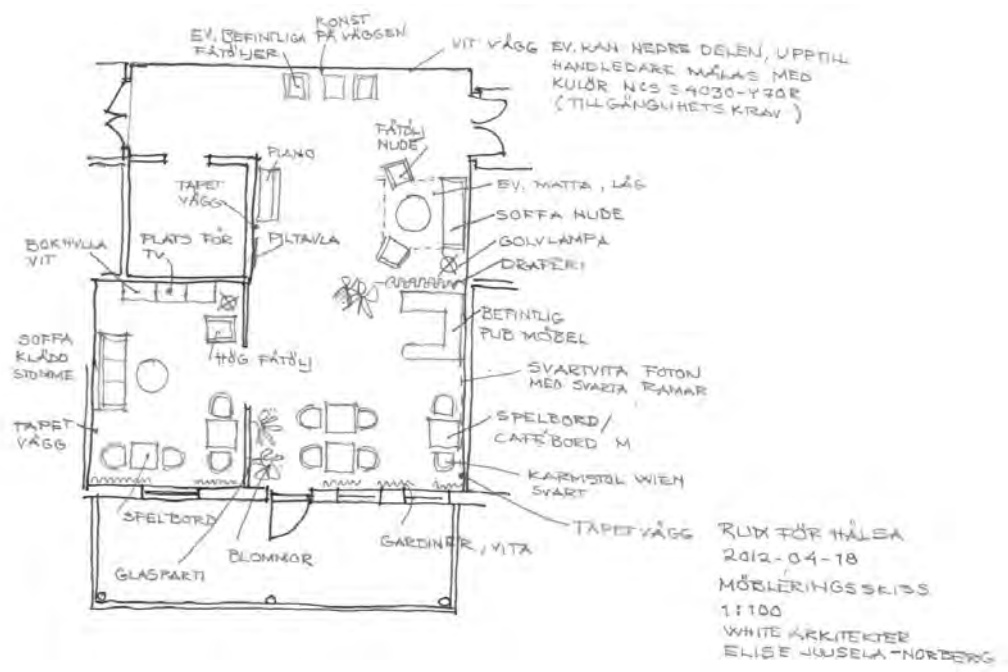 KONST
PÅ VÄGGEN
EV. BEFINTLIGA
FÅTÖLJER
VIT VÄGG EV. KAN NEDRE DELEN, UPPTILL
HANDLEDARE MÅLAS MED
KULÖR NCS S 4030-Y70R
(TILLGÄNGLIHETSKRAV)
FÅTÖLJ
NUDE
PIANO
TAPET
VÄGG
EV. MATTA, LÅG
SOFFA NUDE
GOLVLAMPA
DRAPERI
BOKHYLLA
VIT
PLATS FÖR
TV
PILTAVLA
BEFINTLIG
PUB MÖBEL
SOFFA
KLÄDD
STOMME
HÖG FÅTÖLJ
SVARTVITA FOTON
MED SVARTA RAMAR
TAPET
VÄGG
SPELBORD/
CAFÉBORD M
KARMSTOL WIEN
SVART
SPELBORD
BLOMMOR
GARDINER, VITA
TAPETVÄGG
GLASPARTI
RUM FÖR HÄLSA
2012-04-18
MÖBLERINGSSKISS
1:100
WHITE ARKITEKTER
ELISE JUUSELA-NORBERG